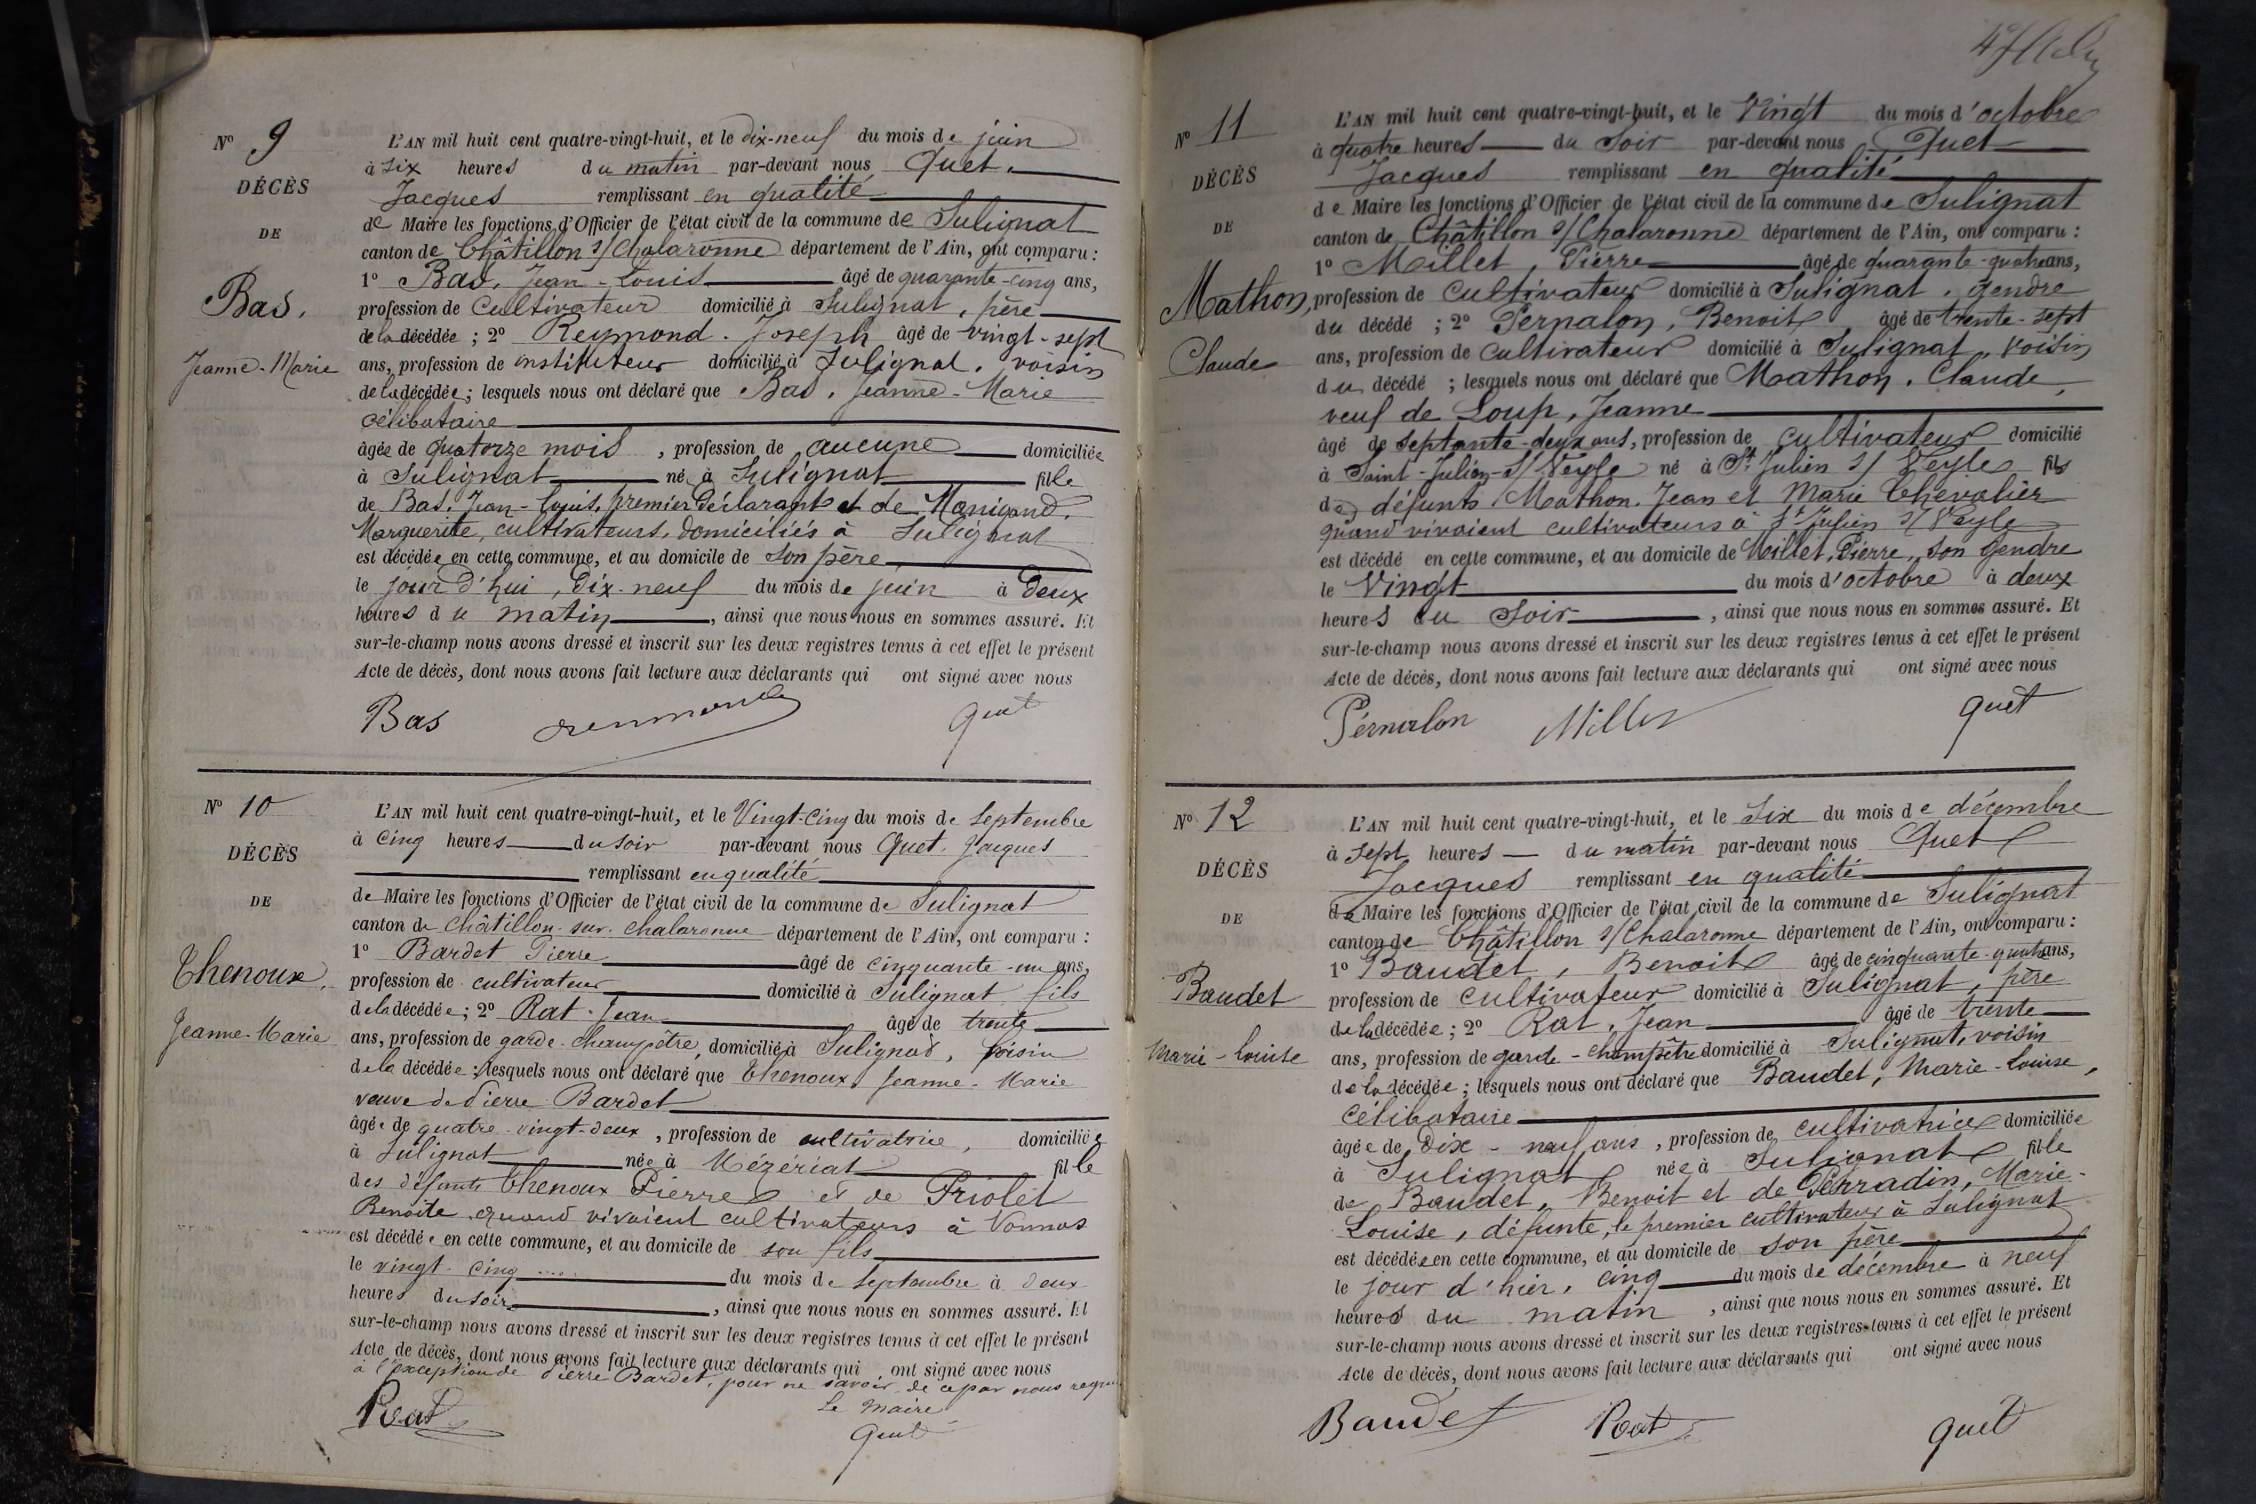 Nº 9
DÉCÈS
DE
Bas,
Jeanne-Marie
L'AN mil huit cent quatre-vingt-huit, et le dix-neuf du mois de juin
à six heures du matin par-devant nous Quet,
Jacques remplissant en qualité
de Maire les fonctions d'Officier de l'état civil de la commune de Sulignat
canton de Châtillon s/Chalaronne département de l'Ain, ont comparu :
1º Bas, Jean-Louis âgé de quarante-cinq ans,
profession de cultivateur domicilié à Sulignat, père
de la décédée ; 2º Reymond, Joseph âgé de vingt-sept
ans, profession de instituteur domicilié à Sulignat, voisin
de la décédée ; lesquels nous ont déclaré que Bas, Jeanne-Marie
célibataire
âgée de quatorze mois, profession de aucune domiciliée
à Sulignat né à Sulignat fille
de Bas, Jean-Louis, premier déclarant et de Manigand,
Marguerite, cultivateurs, domiciliés à Sulignat
est décédée en cette commune, et au domicile de son père
le jour d'hui, dix-neuf du mois de juin à deux
heures du matin, ainsi que nous nous en sommes assuré. Et
sur-le-champ nous avons dressé et inscrit sur les deux registres tenus à cet effet le présent
Acte de décès, dont nous avons fait lecture aux déclarants qui ont signé avec nous
Bas Quet
Nº 10
DÉCÈS
DE
Thenoux,
Jeanne-Marie
L'AN mil huit cent quatre-vingt-huit, et le Vingt-cinq du mois de Septembre
à cinq heures du soir par-devant nous Quet, Jacques
remplissant en qualité
de Maire les fonctions d'Officier de l'état civil de la commune de Sulignat
canton de Châtillon-sur-Chalaronne département de l'Ain, ont comparu :
1º Bardet Pierre âgé de cinquante-un ans,
profession de cultivateur domicilié à Sulignat fils
de la décédée ; 2º Rat Jean âgé de trente
ans, profession de garde-champêtre, domicilié à Sulignat, voisin
de la décédée ; lesquels nous ont déclaré que Thenoux, Jeanne-Marie
veuve de Pierre Bardet
âgée de quatre-vingt-deux, profession de cultivatrice, domiciliée
à Sulignat née à Mézériat fille
des défunts Thenoux Pierre et de Friolet
Benoîte quand vivaient cultivateurs à Vonnas
est décédée en cette commune, et au domicile de son fils
le vingt-cinq du mois de Septembre à deux
heures du soir, ainsi que nous nous en sommes assuré. Et
sur-le-champ nous avons dressé et inscrit sur les deux registres tenus à cet effet le présent
Acte de décès, dont nous avons fait lecture aux déclarants qui ont signé avec nous
à l'exception de Pierre Bardet, pour ne savoir de ce par nous requis
Le Maire
Rat Quet
Nº 11
DÉCÈS
DE
Mathon,
Claude
L'AN mil huit cent quatre-vingt-huit, et le Vingt du mois d'octobre
à quatre heures du Soir par-devant nous Quet
Jacques remplissant en qualité
de Maire les fonctions d'Officier de l'état civil de la commune de Sulignat
canton de Châtillon s/Chalaronne département de l'Ain, ont comparu :
1º Millet, Pierre âgé de quarante-quatre ans,
profession de cultivateur domicilié à Sulignat, gendre
du décédé ; 2º Pernalon, Benoit, âgé de trente-sept
ans, profession de cultivateur domicilié à Sulignat, voisin
du décédé ; lesquels nous ont déclaré que Mathon, Claude,
veuf de Loup, Jeanne
âgé de septante-deux ans, profession de cultivateur domicilié
à Saint-Julien-s/Veyle né à St Julien s/ Veyle fils
des défunts Mathon, Jean et Marie Chevalier
quand vivaient cultivateurs à St Julien s/ Veyle
est décédé en cette commune, et au domicile de Millet, Pierre, son gendre
le Vingt du mois d'octobre à deux
heures du Soir, ainsi que nous nous en sommes assuré. Et
sur-le-champ nous avons dressé et inscrit sur les deux registres tenus à cet effet le présent
Acte de décès, dont nous avons fait lecture aux déclarants qui ont signé avec nous
Pérnalon Millet Quet
Nº 12
DÉCÈS
DE
Baudet
Marie-Louise
L'AN mil huit cent quatre-vingt-huit, et le Six du mois de décembre
à sept heures du matin par-devant nous Quet
Jacques remplissant en qualité
de Maire les fonctions d'Officier de l'état civil de la commune de Sulignat
canton de Châtillon s/Chalaronne département de l'Ain, ont comparu :
1º Baudet, Benoit âgé de cinquante-quatre ans,
profession de cultivateur domicilié à Sulignat, père
de la décédée ; 2º Rat, Jean âgé de trente
ans, profession de garde-champêtre domicilié à Sulignat, voisin
de la décédée ; lesquels nous ont déclaré que Baudet, Marie-Louise,
célibataire
âgée de dix-neuf ans, profession de cultivatrice domiciliée
à Sulignat née à Sulignat fille
de Baudet, Benoit et de Perradin, Marie-
Louise, défunte, le premier cultivateur à Sulignat
est décédée en cette commune, et au domicile de son père
le jour d'hier, cinq du mois de décembre à neuf
heures du matin, ainsi que nous nous en sommes assuré. Et
sur-le-champ nous avons dressé et inscrit sur les deux registres tenus à cet effet le présent
Acte de décès, dont nous avons fait lecture aux déclarants qui ont signé avec nous
Baudet Rat Quet